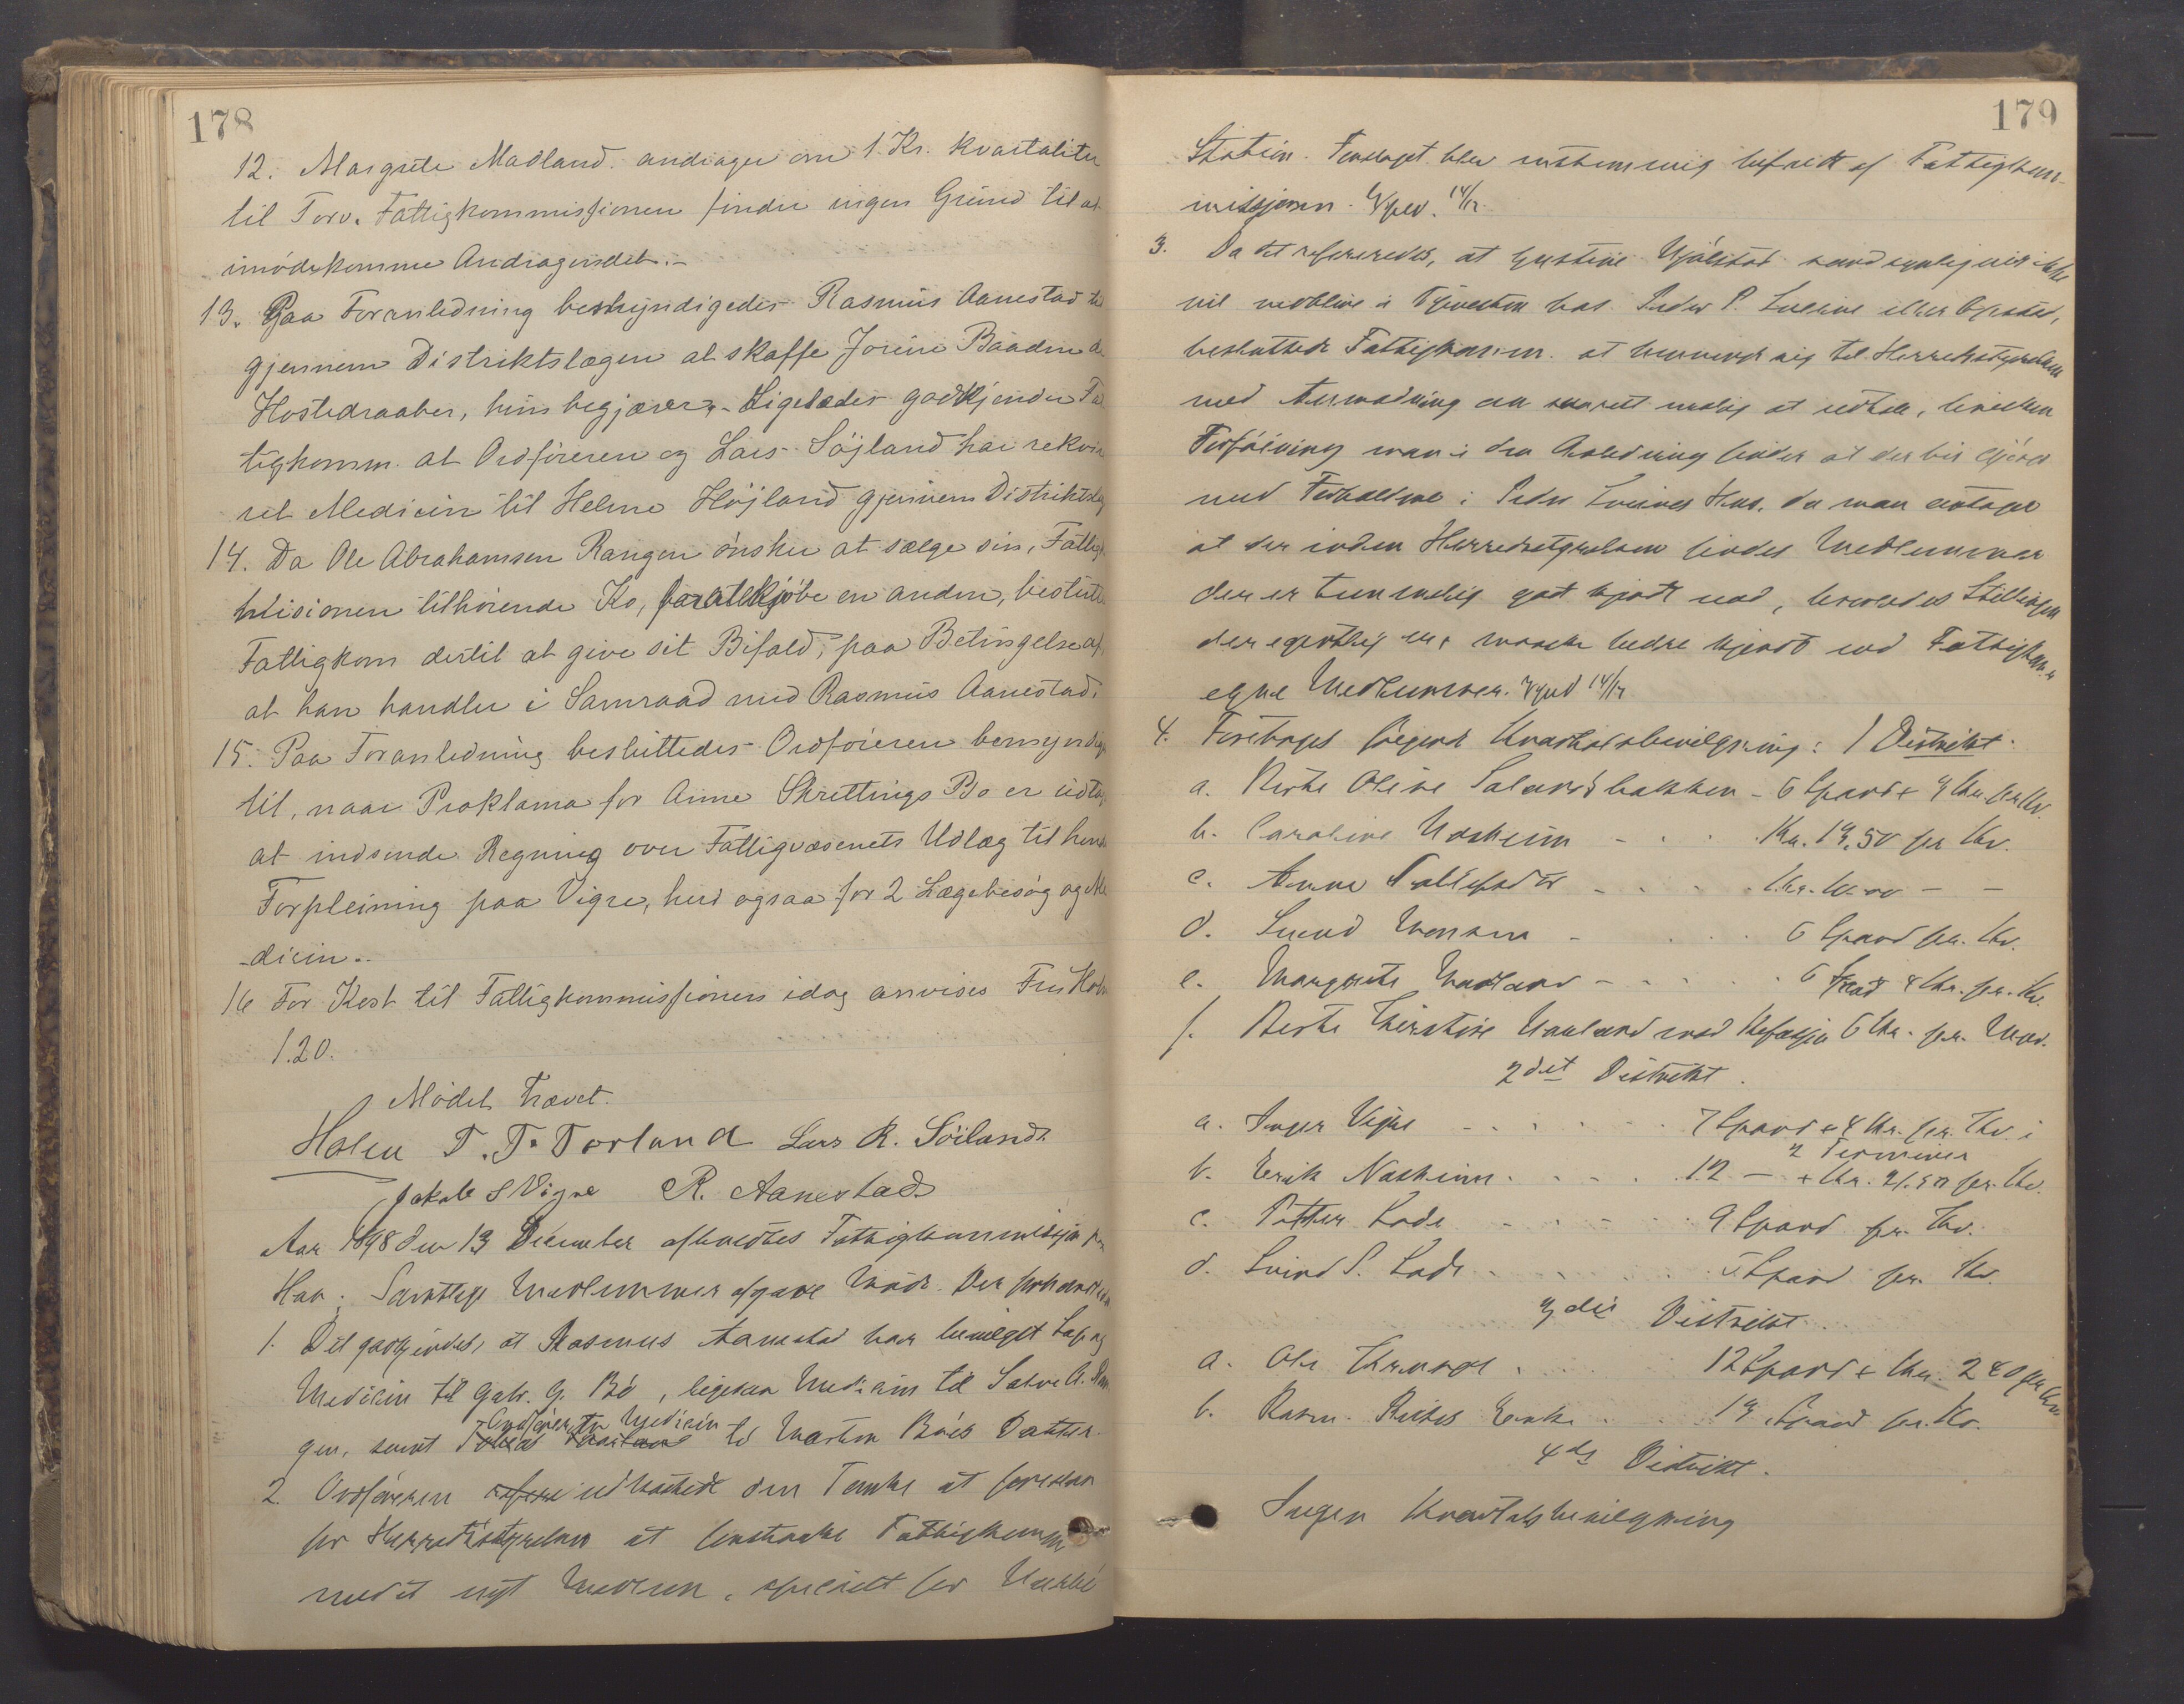 178
12. Margrete Madland. andrager om 1 Kr. kvartaliter
til Torv. Fattigkommissionen finder ingen Grund til at
imødekomme Andragendet.-
13. Paa Foranledning bemyndigedes Rasmus Aanestad til
gjennem Distriktslægen at skaffe Jorine Baadm de
Hostedraaber, hun begjærer.- Ligeledes godkjender Fat
tigkomm. at Ordføreren og Lars Søjland har rekvir
ret Medicin til Helene Højland gjennem Distriktslæg
14. Da Ole Abrahamsen Rangen ønsker at sælge sin, Fattigk
misionen tilhørende Ko, for at kjøbe en anden, beslutte
Fattigkom dertil at give sit Bifald, paa Betingelse af,
at han handler i Samraad med Rasmus Aanestad.
15. Paa Foranledning besluttedes Ordføreren bemyndige
til, naar Proklama for Anne Skrettings Bo er udtag
at indsende Regning over Fattigvæsenets Udlæg til hend
Forpleining paa Vigre, herd ogsaa for 2 Lægebesøg og Me
-dicin..
16 For Kost til Fattigkommissionen idag anvises Fru Holm
1.20.
Mødet hævet.
Holm T. T. Torland Lars R. Söiland
Jakob S Vigre R. Aanestad
Aar 1898 den 13 December afholdtes Fattigkommission paa
Haa. Samtlige Medlemmer afgave Møde. Der forhandled
1. Det godkjendes, at Rasmus Aanestad har bevilget Læge og
Medicin til Gabr. G. Bø, ligesaa Medicin til Salve A. Ran
Ordføreren Medicin
gen, samt Tobias til Marten Bøes Datter.
2. Ordføreren udkastede den Tanke at foreslaa
for Herredsstyrelsen at forstærke Fattigkomm
med et nyt Medlem, specielt for Nærbø
179
Station. Forslaget blev enstemmig bifaldt af Fattigkom-
missjonen. 14/12
3. Da det refereredes, at Gustine Hjålstad sandsynligvis ikke
vil vedblive i Tjenesten hos Peder P. Lueine eller Opstad,
besluttede Fattigkomm. at henvende sig til Herredsstyrelsen
med Anmodning om snarest mulig at udtale, hvilken
Forføining man i den Anledning finder at der bør gjøres
med Forholdene i Peder Hus, da man antager
at der inden Herredsstyrelsen findes Medlemmer
der er temmelig godt kjendt med, hvorledes Stillingen
der egentlig er, maaske bedre kjendt end Fattigkom.s
egne Medlemmer. 14/12
4. Foretoges følgende Kvartalsbevilgning: 1 Distrikt.
a. Berte Oline Salandsbakken - 6 Spand + 4 Kr. pr Kv.
b. Caroline Nærheim - . . . Kr. 19,50 pr Kv.
c. Anne Tollefsdtr - . . . Kr. - -
d. Svend - . . . 6 Spand pr. Kv.
e. Margrete Madland - . . . 6 Spand 8 Kr. pr. Kv.
f. Berte Kirstine Hauland 6 Kr. pr. Maaned
2det Distrikt.
a. Inger Vigre - . . . 7 Spand + 8 Kr. pr. Kv. i
2 Terminer
b. Erik Nærheim . . . 12 - + Kr. 21.50 pr. Kv.
c. Petter Lode - . . . 9 Spand pr. Kv.
d. Svend S. Lode . . . 5 Spand pr. Kv.
3die Distrikt.
a. Ole . . . 12 Spand + Kr. 2 80 pr Kv
b. Rasm. . . 19 Spand pr. Kv.
4de Distrikt.
Ingen Kvartalsbevilgning